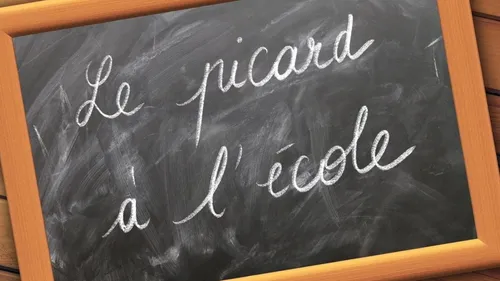 Le picard
à l'école